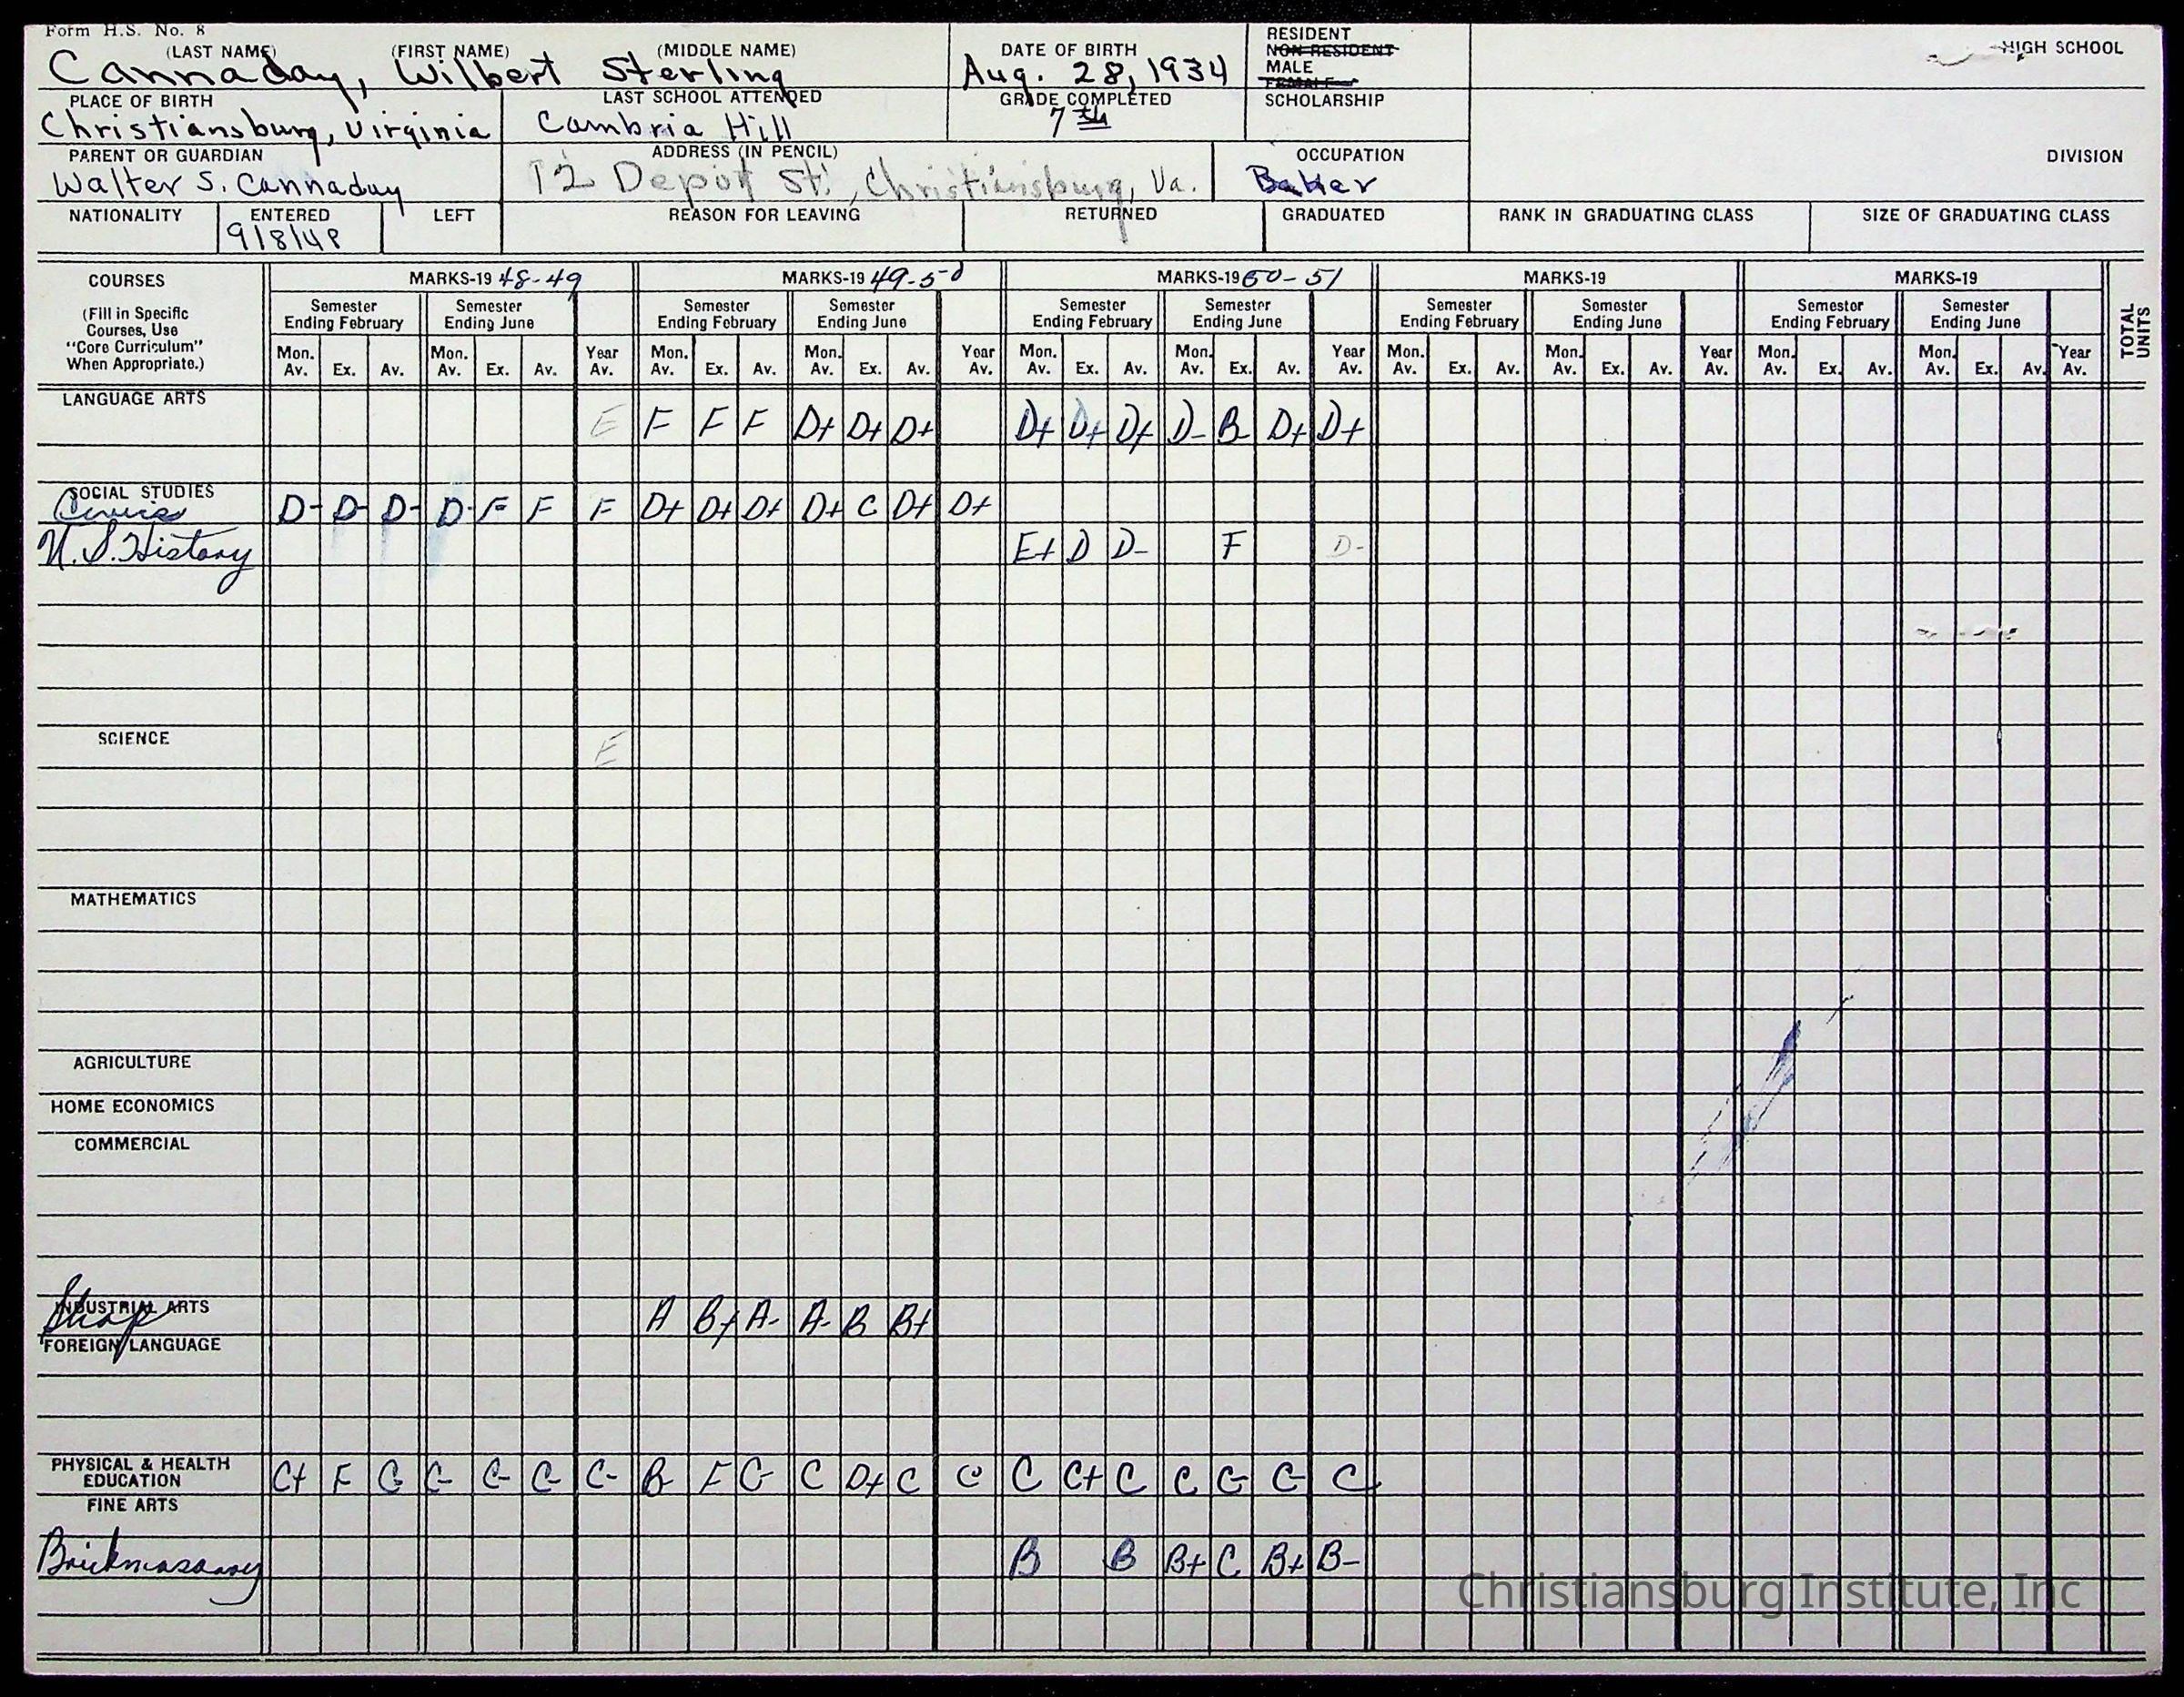 Form H.S. No. 8
(LAST NAME) (FIRST NAME) (MIDDLE NAME) DATE OF BIRTH RESIDENT
NON-RESIDENT HIGH SCHOOL
Cannaday, Wilbert Sterling Aug. 28, 1934 MALE
FEMALE
PLACE OF BIRTH LAST SCHOOL ATTENDED GRADE COMPLETED SCHOLARSHIP
Christiansburg, Virginia Cambria Hill 7th
PARENT OR GUARDIAN ADDRESS (IN PENCIL) OCCUPATION DIVISION
Walter S. Cannaday 12 Depot St., Christiansburg, Va. Baker
NATIONALITY ENTERED LEFT REASON FOR LEAVING RETURNED GRADUATED RANK IN GRADUATING CLASS SIZE OF GRADUATING CLASS
9/8/48
COURSES MARKS-19 48-49 MARKS-19 49-50 MARKS-19 50-51 MARKS-19 MARKS-19
(Fill in Specific Semester Semester Semester Semester Semester Semester Semester Semester Semester Semester
Courses, Use Ending February Ending June Ending February Ending June Ending February Ending June Ending February Ending June Ending February Ending June TOTAL UNITS
"Core Curriculum" Mon. Mon. Year Mon. Mon. Year Mon. Mon. Year Mon. Mon. Year Mon. Mon. Year
When Appropriate.) Av. Ex. Av. Av. Ex. Av. Av. Av. Ex. Av. Av. Ex. Av. Av. Av. Ex. Av. Av. Ex. Av. Av. Av. Ex. Av. Av. Ex. Av. Av. Av. Ex. Av. Av. Ex. Av. Av.
LANGUAGE ARTS
E F F F D+ D+ D+ D+ D+ D+ D- B D+ D+
SOCIAL STUDIES
Civics D- D- D- D- F F F D+ D+ D+ D+ C D+ D+
U.S. History E+ D D- F D-
SCIENCE E
MATHEMATICS
AGRICULTURE
HOME ECONOMICS
COMMERCIAL
INDUSTRIAL ARTS
Shop A B+ A- A- B B+
FOREIGN LANGUAGE
PHYSICAL & HEALTH
EDUCATION C+ F C- C- C- C- C- B- F C- C D+ C C C C+ C C C- C- C
FINE ARTS
Brickmasonry B B B+ C B+ B-
Christiansburg Institute, Inc